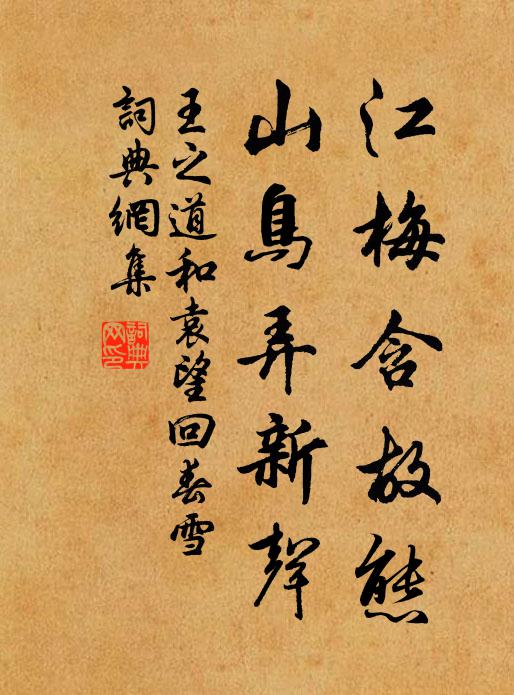 江梅含故態
山鳥弄新聲
王之道和袁望回春雪
詞典網集
詞典网印